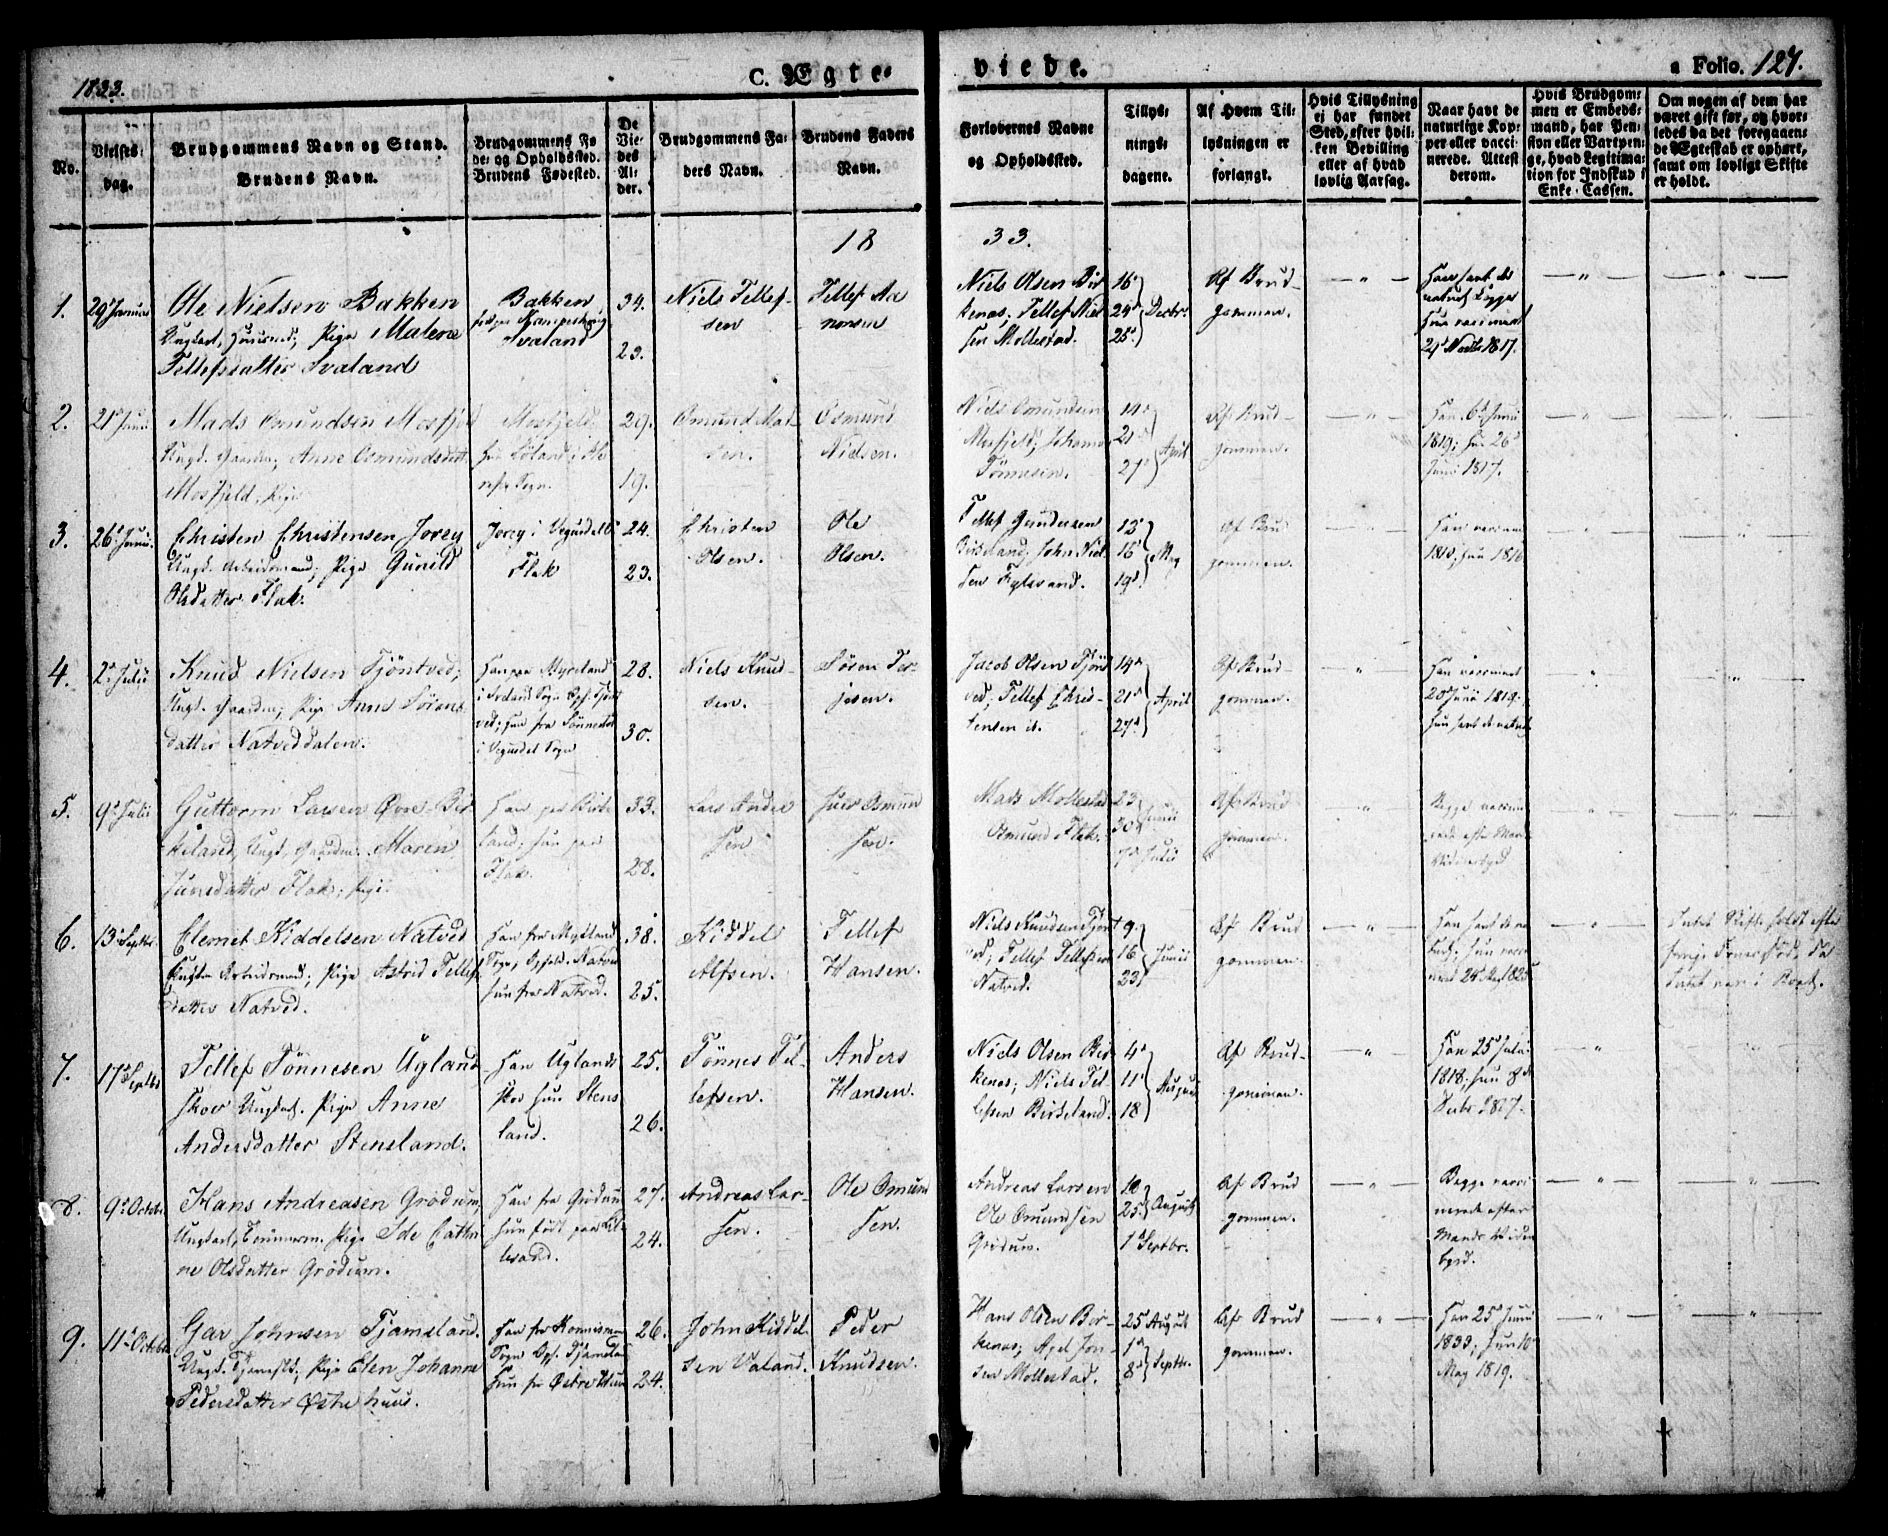 1833.
C. Ægte-
viede.
a Folio. 127.
No.
Vielses-
dag.
Brudgommens Navn og Stand.
Brudens Navn.
Brudgommens Fø-
de- og Opholdssted.
Brudens Fødested.
De
Vie-
des
Al-
der.
Brudgommens Fa-
ders Navn.
Brudens Faders
Navn.
Forlovernes Navne
og Opholdssted.
Tillys-
nings-
dagene.
Af Hvem Til-
lysningen er
forlangt.
Hvis Tillysning
ei har fundet
Sted, efter hvil-
ken Bevilling
eller af hvad
lovlig Aarsag.
Naar havt de
naturlige Kop-
per eller vacci-
nerede. Attest
derom.
Hvis Brudgom-
men er Embeds-
mand, har Pen-
sion eller Vartpen-
ge, hvad Legitima-
tion for Indskud i
Enke-Cassen.
Om nogen af dem har
været gift før, og hvor-
ledes da det foregaaen-
de Ægteskab er ophørt,
samt om lovligt Skifte
er holdt.
18
33.
1.
29 Januar
Ole Nielsen Bakken
Ungkarl, Pige Malene
Tellefsdatter Svaland
Bakken
Svaland
34.
23.
Niels Tellef-
sen
Tellef Aa
nonsen
Niels Olsen Bir
kenæs, Tellef Niel
sen Mollestad.
16
24 Decbr.
25
Af Brud-
gommen.
Han havt de
naturl. Kopper
Hun vaccineret
1817.
2.
21 Junii
Mads Osmundsen Mosfjeld
Ungk. Gaardm; Anne Osmundsdatt
Mosfjeld, Pige
Mosfjeld
29.
19.
Osmund Mad-
sen.
Osmund
Nielsen.
Niels Osmundsen
Mosfjeld;
Tønnesen.
14
21
27
April
Af Brud-
gommen.
Han 6 Junii
1819; Hun 26
Junii 1817.
3.
26 Junii.
Christen Christensen Jorey
Ungk. Arbeidsmand; Pige Gunild
Olsdatter Flak.
Jorey i Vegusdal
Flak
24.
23.
Christen
Olsen.
Ole
Olsen.
Tellef Gundersen
Birkeland; John Niel
sen
13
16
19
May
Af Brud
gommen.
Han vaccineret
1810; Hun 1816
4.
2 Julii
Knud Nielsen Tjöntved;
Ungk. Gaardm; Pige Anne Sörens
datter Natveddalen.
Han paa Myreland
i Sogn Oph. Tjönt
ved; Hun fra
i Vegusdal Sogn
28.
30.
Niels Knud-
sen.
Sören Ter-
jesen.
Jacob Olsen Tjönt
ved; Tellef Chris-
tensen ib.
14
21
27
April
Af Brud-
gommen.
Han vaccineret
20 Junii 1819.
Hun havt de naturl.
5.
9 Julii
Guttorm Larsen Øvre-Bir
keland, Ungk. Gaardm. Maren
Jensdatter Flak; Pige
Han paa Birke
land; Hun paa
Flak.
33.
28.
Lars Ander
sen
Jens Osmund
sen.
Mads Mollestad
Osmund Flak.
23
30
Junii
7 Julii
Af Brud
gommen.
Begge vaccine
rede efter
Vidnesbyrd
6.
13 Septbr.
Clemet Kiddelsen Natved
Arbeidsmand; Pige Astrid Tellef
datter Natved.
Han fra
Sogn, Ophold. Natved
Hun fra Natved.
38.
25.
Kiddel
Alfsen.
Tellef
Hansen.
Niels Knudsen Tjönt
ved; Tellef Tellefsen
Natved.
9
16
23
Junii
Af Brud
gommen.
Han havt de na
turl; Hun vacci
neret 1825
Intet Skifte holdt efter
Intet var i Boet.
7.
17 Septbr
Tellef Tönnesen Ugland
skov Ungkarl. Pige Anne
Andersdatter Stensland.
Han Uglands
skov Hun Stens
land.
25.
26.
Tönnes Tel-
lefsen.
Anders
Hansen.
Niels Olsen Bir
kenæs; Niels Tel-
lefsen Birkeland.
4
11
18
August
Af Brud-
gommen.
Han 25 Julii
1818; Hun 8
1817.
8.
9 Octbr.
Hans Andreasen Grödum;
Ungkarl, Tömmerm. Pige Ide Cathri
ne Olsdatter Grödum.
Han fra Grödum
Hun födt paa Lil-
lesand.
27.
24.
Andreas Lar-
sen.
Ole Osmund
sen.
Andreas Larsen
Ole Osmundsen
Grödum.
18
25
August
1 Septbr.
Af Brud
gommen.
Begge vacci
nerede efter
Mands Vidnes
byrd.
9.
11 Octobr
Gar Johnsen Tjamsland.
Ungk. Pige Elen Johanne
Pedersdatter Østrehuus.
Han fra
Sogn Oph. Tjamsland
Hun fra Østrehuus
26.
24.
John Kiddel
sen Valand.
Peder
Knudsen.
Hans Olsen Bir-
kenæs; Axel Jon-
sen Mollestad.
25 August
1
8
Septbr.
Af Brud
gommen.
Han 25 Junii
1833; Hun 10
May 1819.